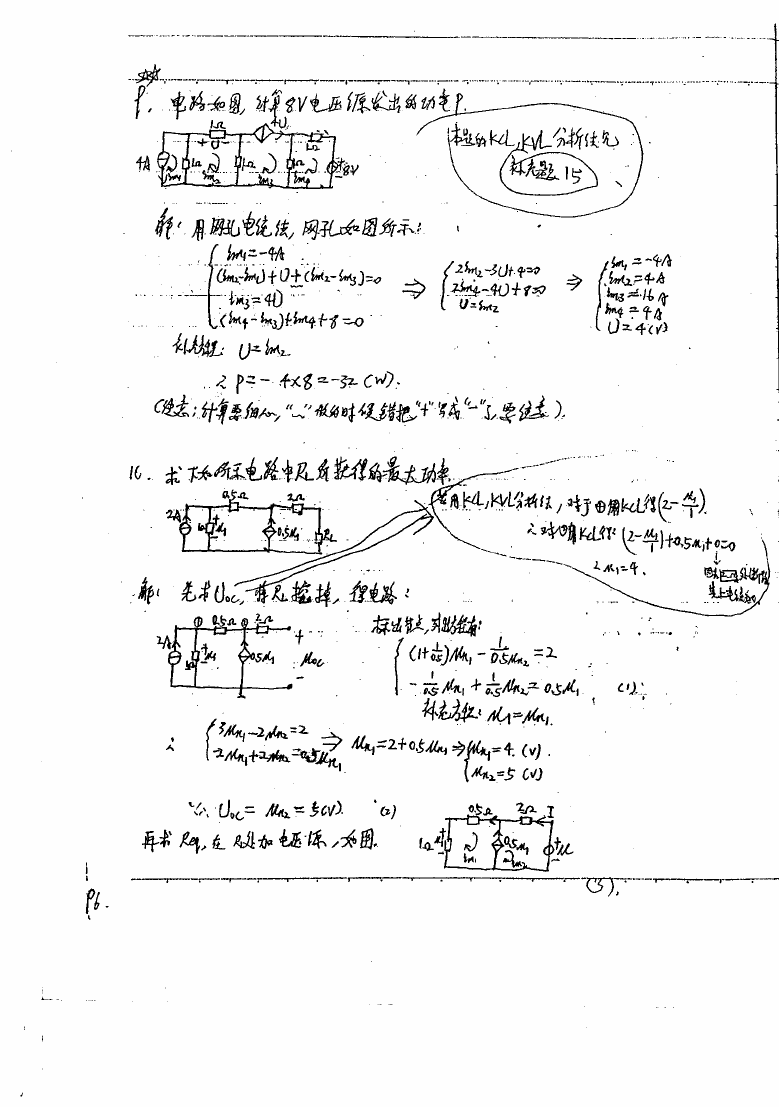 9. 电路如图, 计算8V电压源发出的功率P.
1Ω
4U
1Ω
+ U -
4A
1Ω
1Ω
1Ω
+8V
im1
im2
im3
im4
本题的KCL,KVL分析法见
补充题15
解: 用网孔电流法, 网孔如图所示:
im1=-4A
(im2-im1)+U+(im2-im3)=0
im3=4U
(im4-im3)+im4+8=0
⇒
2im2-3U+4=0
2im4-4U+8=0
U=im2
⇒
im1=-4A
im2=4A
im3=16A
im4=4A
U=4(V)
补充方程: U=im2
∴ P=-4×8=-32(W).
(注意:计算要细心, "-"做的时候错把"+"写成"-"了,要注意).
10. 求下如所示电路中RL所获得的最大功率.
0.5Ω
2Ω
2A
1Ω
+u1
0.5u1
RL
若用KCL,KVL分析法, 对于①用KCL得(2-u1/1).
∴对②用KCL得: (2-u1/1)+0.5u1+0=0
∴u1=4.
解: 先求Uoc, 将RL拉掉, 得电路:
① 0.5Ω ② 2Ω
2A
1Ω
+u1
0.5u1
+
uoc
-
标出节点, 列出方程有:
(1+1/0.5)un1-1/0.5un2=2
-1/0.5un1+1/0.5un2=0.5u1 (1)
补充方程: u1=un1.
∴
3un1-2un2=2
-2un1+2un2=0.5un1
⇒ un1=2+0.5un1 ⇒
un1=4.(V).
un2=5(V)
∴ Uoc=un2=5(V). (2)
再求Req, 在RL处加电压源, 如图.
0.5Ω
2Ω
I
1Ω
u1
im1
0.5u1
im2
+u
(3).
P6.